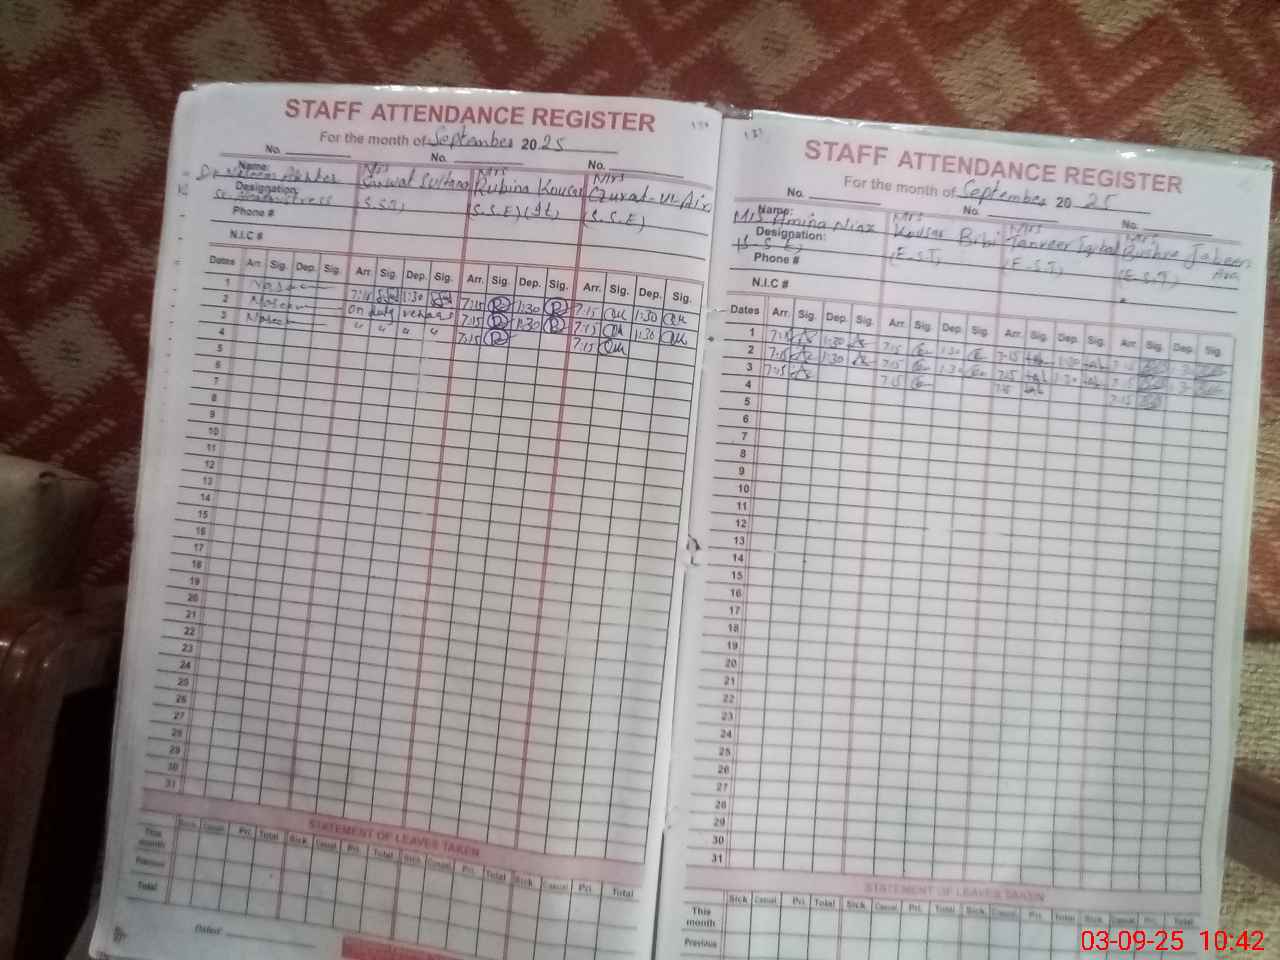 STAFF ATTENDANCE REGISTER
For the month of September 20 25
No. No. No.
Name:
Mrs Mrs Mrs
Sarwat Sultana Rubina Kousar Qurat-ul-Ain
Designation:
(S.S.T) (S.S.E)(It) (S.S.E)
Phone #
N.I.C #
Dates Arr. Sig. Dep. Sig. Arr. Sig. Dep. Sig. Arr. Sig. Dep. Sig. Arr. Sig. Dep. Sig.
1 7:15 1:30 7:15 1:30 7:15 1:30
2 on duty 7:15 1:30 7:15 1:30
3 " " " " 7:15 7:15
4
5
6
7
8
9
10
11
12
13
14
15
16
17
18
19
20
21
22
23
24
25
26
27
28
29
30
31
STATEMENT OF LEAVES TAKEN
Sick Casual Pri. Total Sick Casual Pri. Total Sick Casual Pri. Total Sick Casual Pri. Total
This month
Previous
Total
Dated
STAFF ATTENDANCE REGISTER
For the month of September 20 25
No. No. No.
Name:
Mrs Amina Niaz Mrs Kousar Bibi Mrs Tanveer Iqbal Bushra Jabeen
Designation:
(E.S.T) (E.S.T) (E.S.T)
Phone #
N.I.C #
Dates Arr. Sig. Dep. Sig. Arr. Sig. Dep. Sig. Arr. Sig. Dep. Sig. Arr. Sig. Dep. Sig.
1 7:15 1:30 7:15 1:30 7:15 1:30 7:15
2 7:15 1:30 7:15 1:30 7:15 1:30 7:15
3 7:15 7:15 7:15 7:15
4
5
6
7
8
9
10
11
12
13
14
15
16
17
18
19
20
21
22
23
24
25
26
27
28
29
30
31
STATEMENT OF LEAVES TAKEN
Sick Casual Pri. Total Sick Casual Pri. Total Sick Casual Pri. Total Sick Casual Pri. Total
This month
Previous
03-09-25 10:42